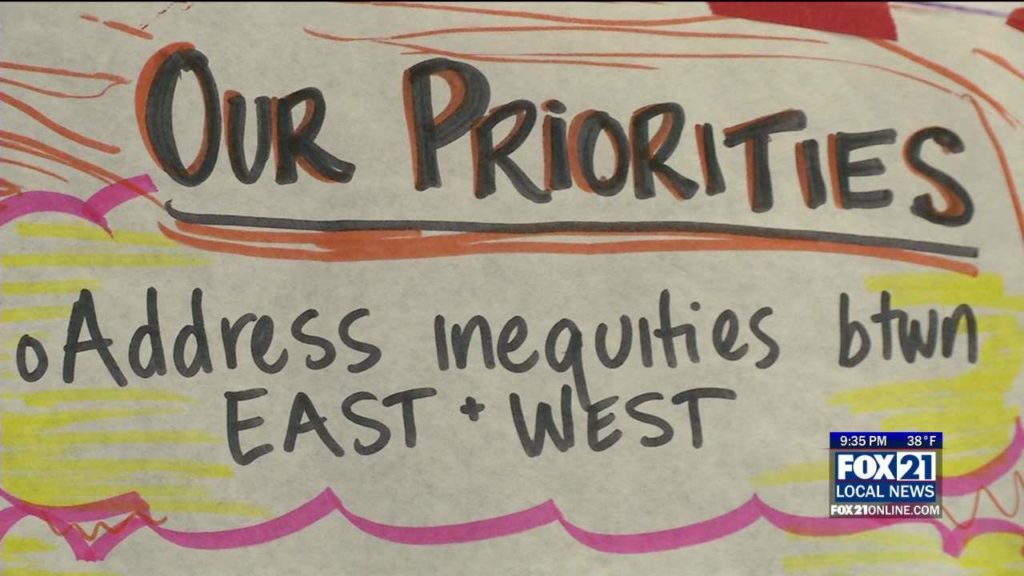 OUR PRIORITIES
o Address inequities btwn
EAST + WEST
9:35 PM 38°F
FOX 21
LOCAL NEWS
FOX21ONLINE.COM